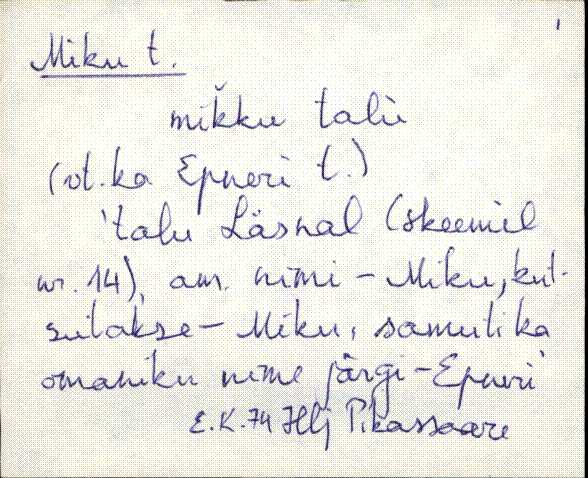 Miku t.
mik̆ku talù
(vt. ka Epneri t.)
'talu Läsnal (skeemil
nr. 14), am. nimi - Miku, kut-
sutakse - Miku, samuti ka
omaniku nime järgi - Epneri'
E.K. 74 Hlj Pikassaare